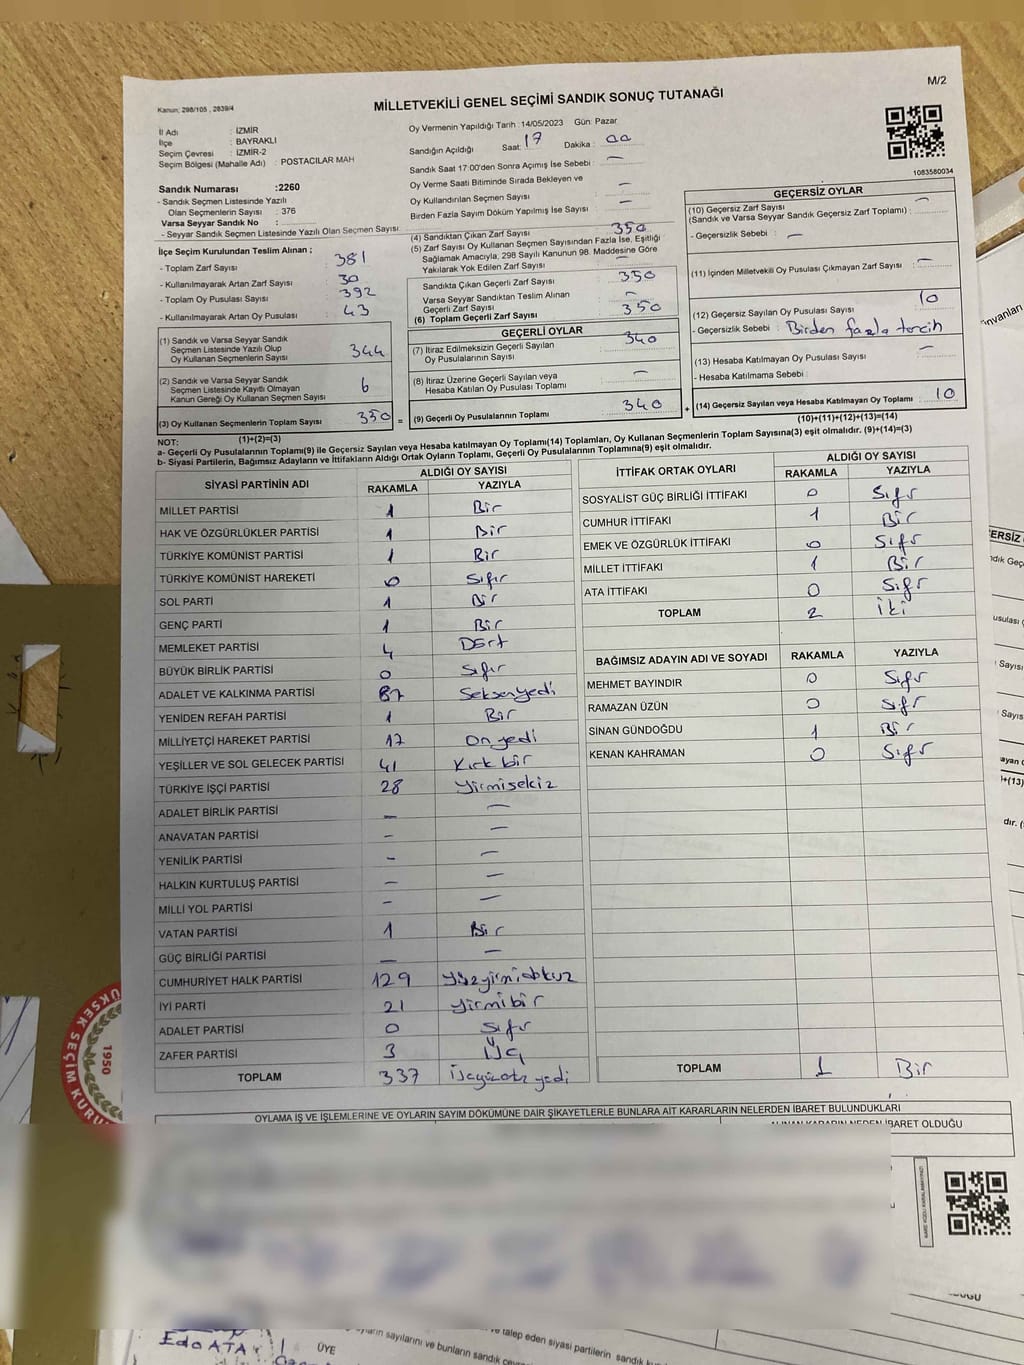 M/2
Kanun: 298/105 , 2839/4
MİLLETVEKİLİ GENEL SEÇİMİ SANDIK SONUÇ TUTANAĞI
İl Adı : İZMİR
İlçe : BAYRAKLI
Seçim Çevresi : İZMİR-2
Seçim Bölgesi (Mahalle Adı) : POSTACILAR MAH
Sandık Numarası :2260
- Sandık Seçmen Listesinde Yazılı
Olan Seçmenlerin Sayısı : 376
Varsa Seyyar Sandık No :
- Seyyar Sandık Seçmen Listesinde Yazılı Olan Seçmen Sayısı:
Oy Vermenin Yapıldığı Tarih :14/05/2023 Gün: Pazar
Sandığın Açıldığı Saat: 17 Dakika: 00
Sandık Saat 17:00'den Sonra Açımış İse Sebebi : —
Oy Verme Saati Bitiminde Sırada Bekleyen ve
Oy Kullandırılan Seçmen Sayısı —
Birden Fazla Sayım Döküm Yapılmış İse Sayısı : —
1083580034
İlçe Seçim Kurulundan Teslim Alınan ;
- Toplam Zarf Sayısı : 381
- Kullanılmayarak Artan Zarf Sayısı : 30
- Toplam Oy Pusulası Sayısı : 392
- Kullanılmayarak Artan Oy Pusulası : 43
(1) Sandık ve Varsa Seyyar Sandık
Seçmen Listesinde Yazılı Olup
Oy Kullanan Seçmenlerin Sayısı 344
(2) Sandık ve Varsa Seyyar Sandık
Seçmen Listesinde Kayıtlı Olmayan
Kanun Gereği Oy Kullanan Seçmen Sayısı 6
(3) Oy Kullanan Seçmenlerin Toplam Sayısı 350
(1)+(2)=(3)
(4) Sandıktan Çıkan Zarf Sayısı 350
(5) Zarf Sayısı Oy Kullanan Seçmen Sayısından Fazla İse, Eşitliği
Sağlamak Amacıyla, 298 Sayılı Kanunun 98. Maddesine Göre
Yakılarak Yok Edilen Zarf Sayısı : —
Sandıkta Çıkan Geçerli Zarf Sayısı : 350
Varsa Seyyar Sandıktan Teslim Alınan
Geçerli Zarf Sayısı : —
(6) Toplam Geçerli Zarf Sayısı : 350
GEÇERLİ OYLAR
(7) İtiraz Edilmeksizin Geçerli Sayılan
Oy Pusulalarının Sayısı : 340
(8) İtiraz Üzerine Geçerli Sayılan veya
Hesaba Katılan Oy Pusulası Toplamı : —
= (9) Geçerli Oy Pusulalarının Toplamı 340
GEÇERSİZ OYLAR
(10) Geçersiz Zarf Sayısı
(Sandık ve Varsa Seyyar Sandık Geçersiz Zarf Toplamı) : —
- Geçersizlik Sebebi : —
(11) İçinden Milletvekili Oy Pusulası Çıkmayan Zarf Sayısı : —
(12) Geçersiz Sayılan Oy Pusulası Sayısı : 10
- Geçersizlik Sebebi : Birden fazla tercih
(13) Hesaba Katılmayan Oy Pusulası Sayısı : —
- Hesaba Katılmama Sebebi :
+ (14) Geçersiz Sayılan veya Hesaba Katılmayan Oy Toplamı 10
(10)+(11)+(12)+(13)=(14)
NOT:
a- Geçerli Oy Pusulalarının Toplamı(9) ile Geçersiz Sayılan veya Hesaba katılmayan Oy Toplamı(14) Toplamları, Oy Kullanan Seçmenlerin Toplam Sayısına(3) eşit olmalıdır. (9)+(14)=(3)
b- Siyasi Partilerin, Bağımsız Adayların ve İttifakların Aldığı Ortak Oyların Toplamı, Geçerli Oy Pusulalarının Toplamına(9) eşit olmalıdır.
SİYASİ PARTİNİN ADI ALDIĞI OY SAYISI
RAKAMLA YAZIYLA
MİLLET PARTİSİ 1 Bir
HAK VE ÖZGÜRLÜKLER PARTİSİ 1 Bir
TÜRKİYE KOMÜNİST PARTİSİ 1 Bir
TÜRKİYE KOMÜNİST HAREKETİ 0 Sıfır
SOL PARTİ 1 Bir
GENÇ PARTİ 1 Bir
MEMLEKET PARTİSİ 4 Dört
BÜYÜK BİRLİK PARTİSİ 0 Sıfır
ADALET VE KALKINMA PARTİSİ 87 Seksenyedi
YENİDEN REFAH PARTİSİ 1 Bir
MİLLİYETÇİ HAREKET PARTİSİ 17 Onyedi
YEŞİLLER VE SOL GELECEK PARTİSİ 41 Kırkbir
TÜRKİYE İŞÇİ PARTİSİ 28 Yirmisekiz
ADALET BİRLİK PARTİSİ — —
ANAVATAN PARTİSİ — —
YENİLİK PARTİSİ — —
HALKIN KURTULUŞ PARTİSİ — —
MİLLİ YOL PARTİSİ — —
VATAN PARTİSİ 1 Bir
GÜÇ BİRLİĞİ PARTİSİ — —
CUMHURİYET HALK PARTİSİ 129 Yüzyirmidokuz
İYİ PARTİ 21 Yirmibir
ADALET PARTİSİ 0 Sıfır
ZAFER PARTİSİ 3 Üç
TOPLAM 337 Üçyüzotuzyedi
İTTİFAK ORTAK OYLARI ALDIĞI OY SAYISI
RAKAMLA YAZIYLA
SOSYALİST GÜÇ BİRLİĞİ İTTİFAKI 0 Sıfır
CUMHUR İTTİFAKI 1 Bir
EMEK VE ÖZGÜRLÜK İTTİFAKI 0 Sıfır
MİLLET İTTİFAKI 1 Bir
ATA İTTİFAKI 0 Sıfır
TOPLAM 2 İki
BAĞIMSIZ ADAYIN ADI VE SOYADI RAKAMLA YAZIYLA
MEHMET BAYINDIR 0 Sıfır
RAMAZAN ÜZÜN 0 Sıfır
SİNAN GÜNDOĞDU 1 Bir
KENAN KAHRAMAN 0 Sıfır
TOPLAM 1 Bir
OYLAMA İŞ VE İŞLEMLERİNE VE OYLARIN SAYIM DÖKÜMÜNE DAİR ŞİKAYETLERLE BUNLARA AİT KARARLARIN NELERDEN İBARET BULUNDUKLARI
ALINAN KARARIN NEDEN İBARET OLDUĞU
1950
Eda ATA
ÜYE